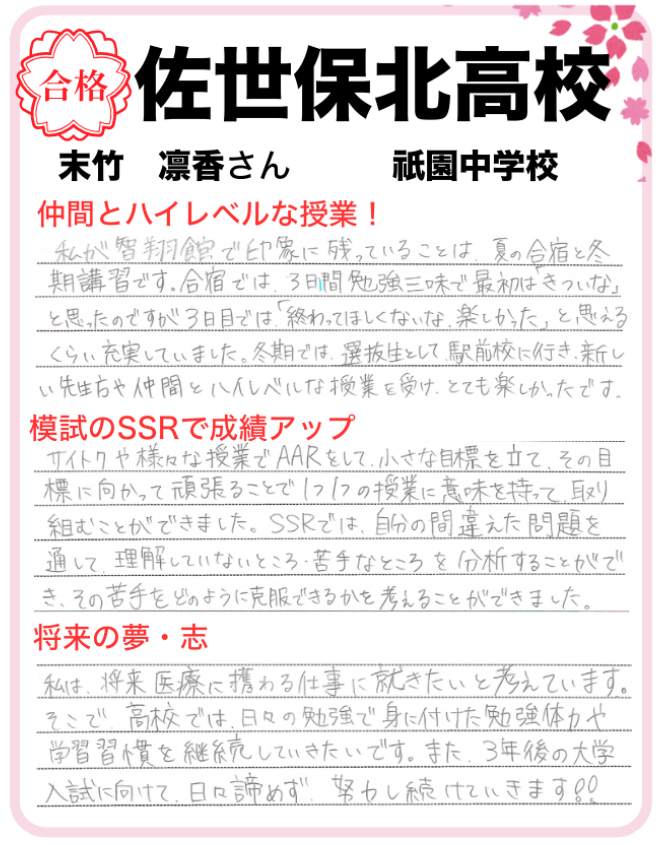 合格
佐世保北高校
末竹 凛香さん 祇園中学校
仲間とハイレベルな授業！
私が智翔館で印象に残っていることは、夏の合宿と冬
期講習です。合宿では、3日間勉強三昧で最初は「きついな」
と思ったのですが3日目では、「終わってほしくないな、楽しかった」と思える
くらい充実していました。冬期では、選抜生として、駅前校に行き、新し
い先生方や仲間とハイレベルな授業を受け、とても楽しかったです。
模試のSSRで成績アップ
サイトクや様々な授業でAARをして、小さな目標を立て、その目
標に向かって頑張ることで1つ1つの授業に意味を持って、取り
組むことができました。SSRでは、自分の間違えた問題を
通して、理解していないところ・苦手なところを分析することがで
き、その苦手をどのように克服できるかを考えることができました。
将来の夢・志
私は、将来医療に携わる仕事に就きたいと考えています。
そこで、高校では、日々の勉強で身に付けた勉強体力や
学習習慣を継続していきたいです。また、3年後の大学
入試に向けて、日々諦めず、努力し続けていきます!!